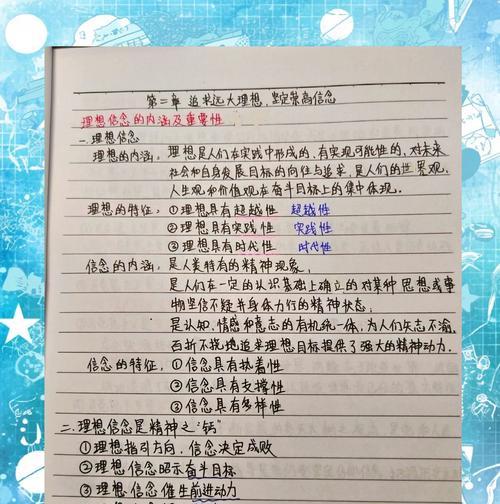 第二章 追求远大理想,坚定崇高信念
理想信念的内涵及重要性
一.理想信念
理想的内涵:理想是人们在实践中形成的、有实现可能性的、对未来
社会和自身发展目标的向往与追求,是人们的世界观、
人生观和价值观在奋斗目标上的集中体现。
理想的特征:①理想具有超越性 超越性
②理想具有实践性 实践性
③理想具有时代性 时代性
信念的内涵:是人类特有的精神现象,
是人们在一定的认识基础上确立的对某种思想或事
物坚信不疑并身体力行的精神状态;
是认知、情感和意志的有机统一体,为人们矢志不渝、
百折不挠地追求理想目标提供了强大的精神动力。
信念的特征:①信念具有执着性
②信念具有支撑性
③信念具有多样性
二.理想信念是精神之"钙"
①理想指引方向,信念决定成败
②理想信念昭示奋斗目标
③理想信念催生前进动力